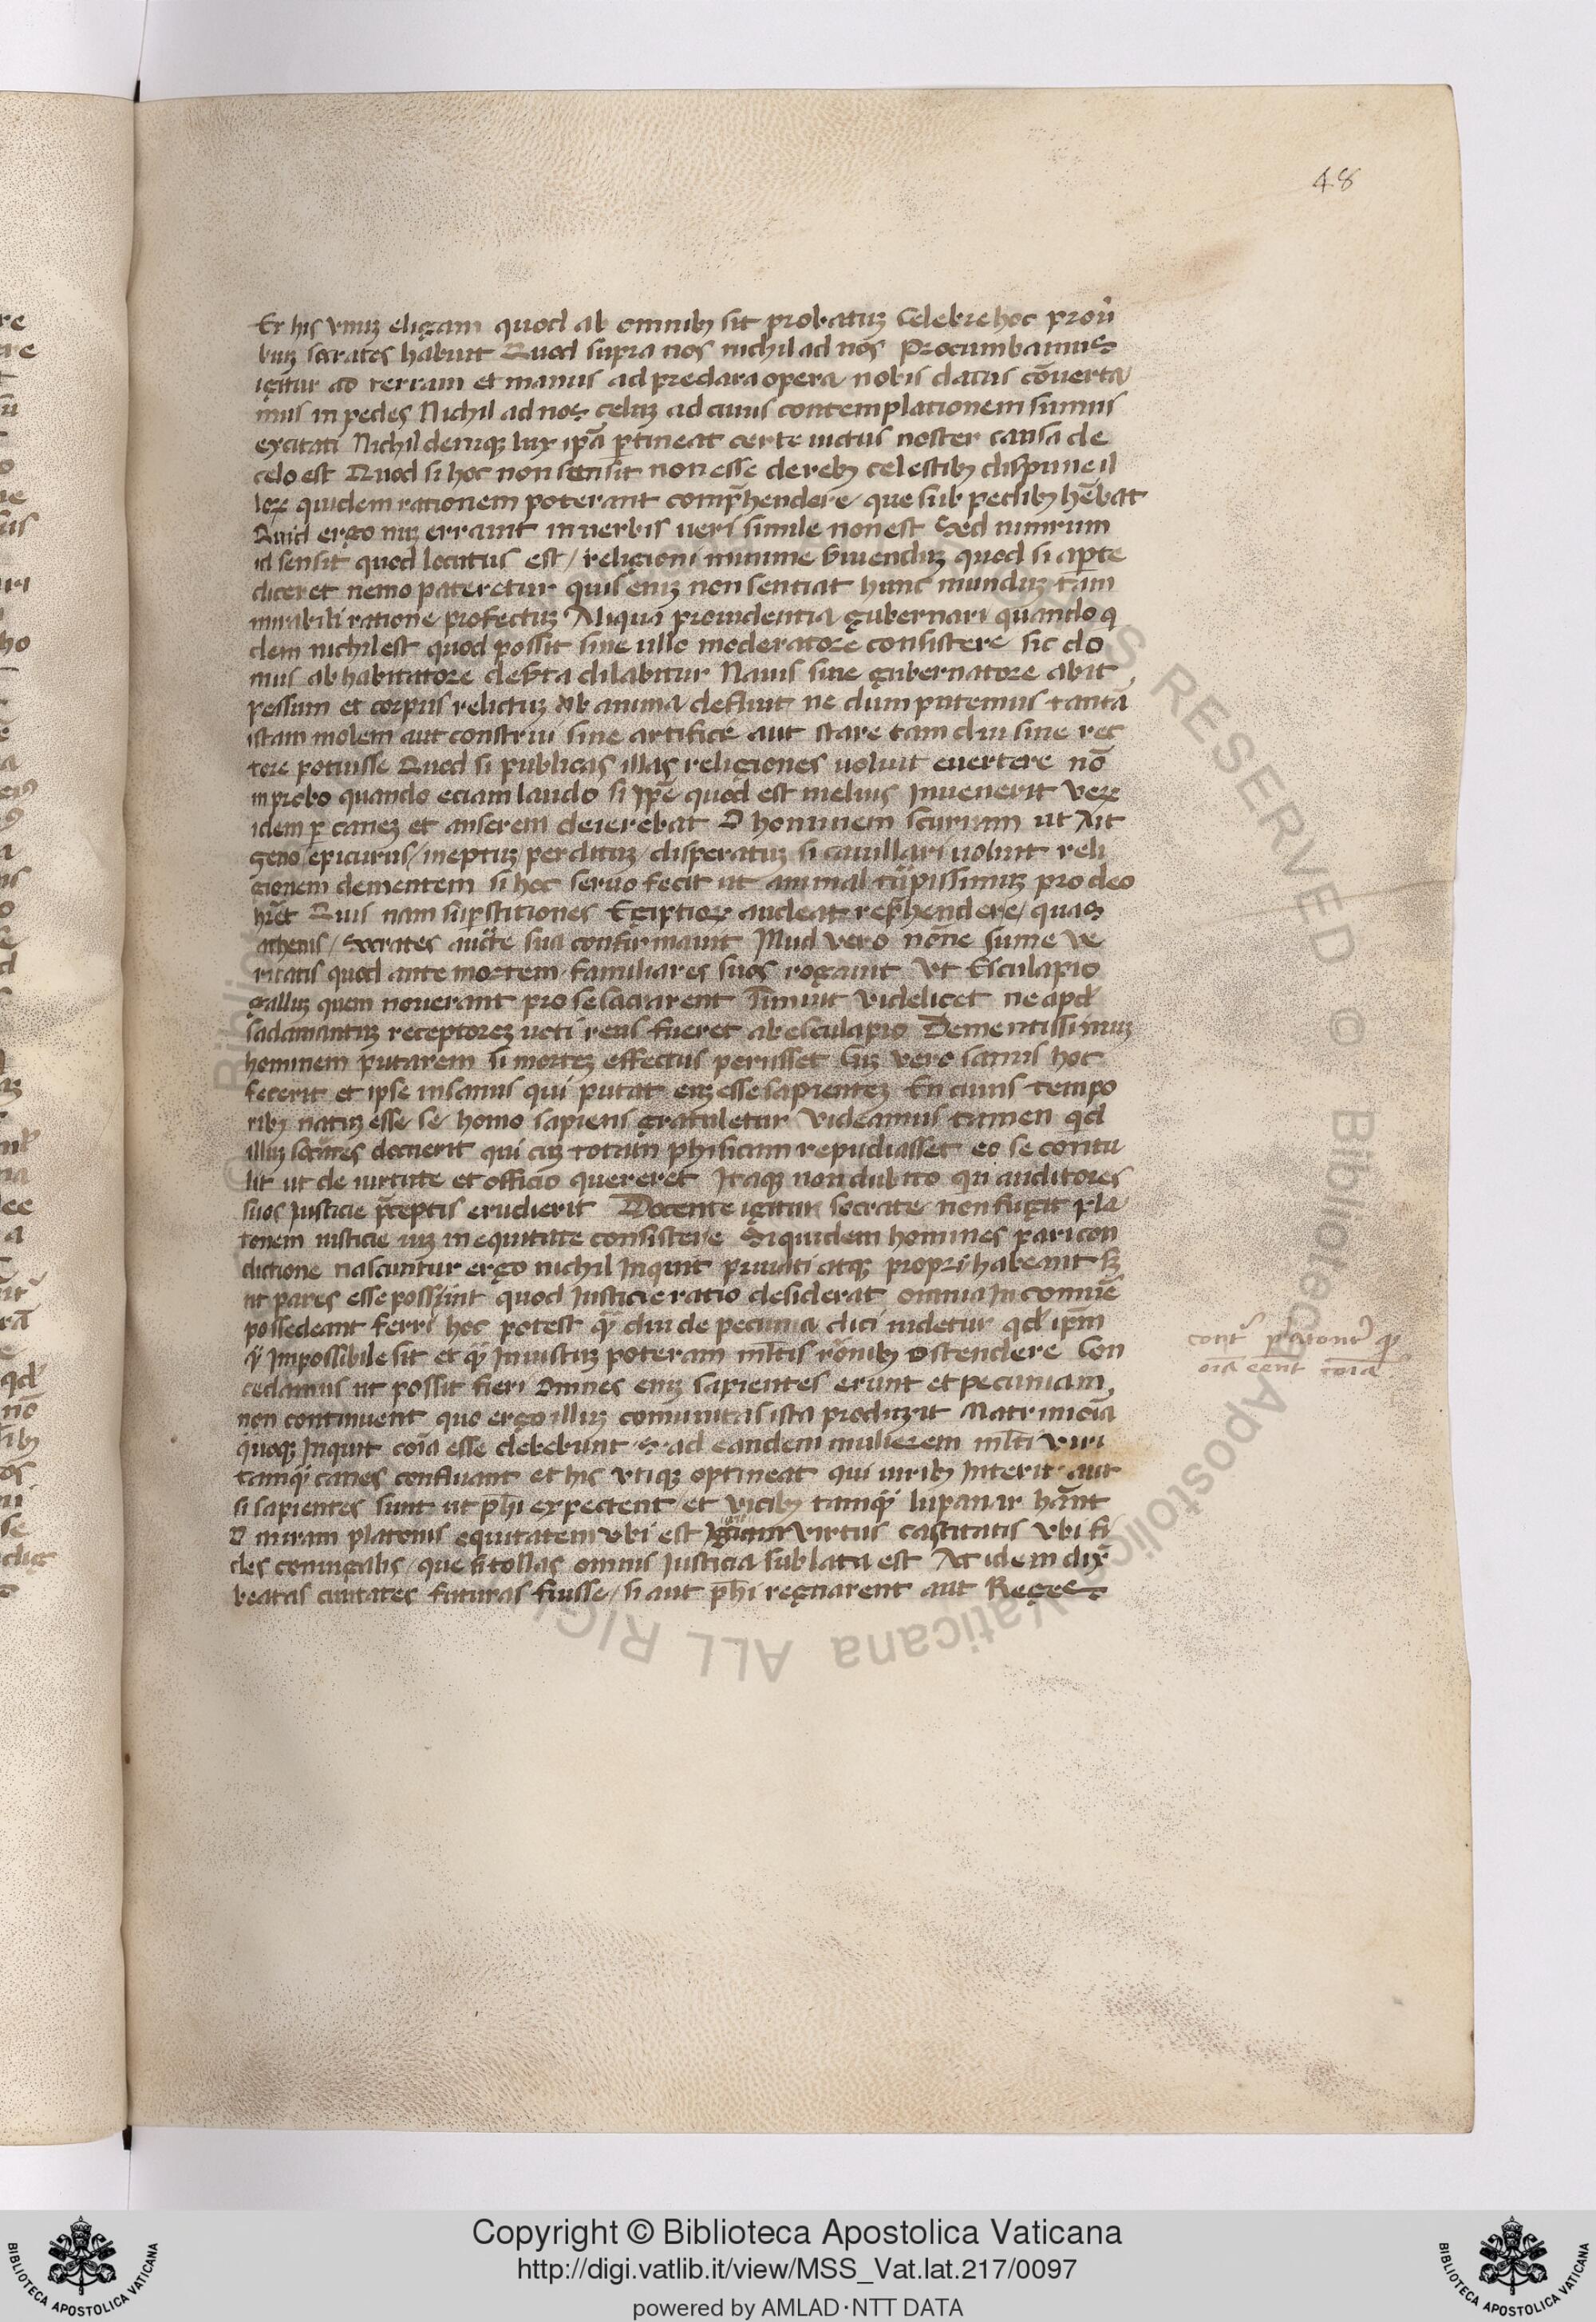 48
Ex his vnuʒ eligam quod ab omnibꝫ sit probatuʒ Celebre hoc prou̾
buʒ socrates habuit Quod supra nos nichil ad nos Procumbamus
igitur ad terram et manus ad preclara opera nobis datas cōuerta
mus in pedes Nichil ad nos celuʒ ad cuius contemplationem sumus
excitati Nichil deniqꝫ lux ip̄a ꝑtineat certe uictus noster causa de
celo est Quod si hoc non sensit non esse de rebꝫ celestibꝫ dispune il
loꝝ quidem rationem poterant comp̄hendere / que sub pedibꝫ hēbat
Quid ergo nuʒ errauit in verbis ueri simile non est Sed nimirum
id sensit quod locutus est / religioni minime s̄uienduʒ quod si aꝑte
diceret nemo pateretur quis eniʒ non sentiat hunc munduʒ tam
mirabili ratione profectuʒ Aliqua prouidentia gubernari quando q
dem nichil est quod possit sine ullo moderatore consistere sic do
mus ab habitatore des̄ta dilabitur Nauis sine gubernatore abit
pessum et corpus relictuʒ ab anima defluit ne dum putemus tantā
istam molem aut construi sine artifice aut stare tam diu sine rec
tore potuisse Quod si publicas illas religiones uoluit euertere nō
inprobo quando eciam laudo si ip̄e quod est melius Inuenerit Veꝝ
idem ꝑ caneʒ et anserem deierebat O hominem scurram ut Ait
Zeno epicurus / ineptuʒ / perdituʒ / disperatuʒ si cauillari uoluit reli
gionem dementem si hoc serio fecit ut animal turpissimuʒ pro deo
hr̄et Quis nam suꝑstitiones Egiptioꝝ audeat rep̄hendere / quas
athenis / Socrates auct̄te sua confirmauit Illud vero nōne sume ve
ritatis quod ante mortem familiares suos rogauit Vt Esculapio
galluʒ quem nouerant pro se sacrarent Timuit videlicet ne apd̾
radamantuʒ receptoreʒ ueti reus fieret ab esculapio Dementissimuʒ
hominem putarem si morteʒ effectus perisset Cuʒ vero sanus hoc
fecerit et ipse insanus qui putat euʒ esse sapienteʒ En cuius tempo
ribꝫ natuʒ esse se homo sapiens gratuletur Videamus tamen qd̾
illuʒ socrates docuerit qui cuʒ totam phisicam repudiasset eo se contu
lit ut de uirtute et officio quereret Itaqꝫ non dubito qn auditores
suos Iusticie p̄ceptis erudierit Docente igitur socrate non fugit pla
tonem iusticie uiʒ in equitate consistere Siquidem homines pari con
dictione nascuntur ergo nichil Inquit priuati atqꝫ proprij habeant sʒ
ut pares esse possint quod Iusticie ratio desiderat omnia In comuē
possedeant ferri hoc potest qͣ̾ diu de pecunia dici uidetur qd̾ ip̄m
qͣ̾ Impossibile sit et qͣ̾ Iniustuʒ poteram ml̄tis rōnibꝫ ostendere Con
cedamus ut possit fieri Omnes eniʒ sapientes erunt et pecuniam
non continuent quo ergo illuʒ comunitas ista produxit Matrimoia
quoqꝫ Inquit cōia esse debebunt s. ad eandem mulierem ml̄ti viri
tamqͣ̾ canes confluant et his vtiqꝫ optineat qui uiribꝫ Interit aut
si sapientes sunt ut ph̄i expectent et vicibꝫ tamqͣ̾ lupanar hān̄t
O miram platonis equitatem vbi est igitur virtus castitatis vbi fi
des coniugalis / que si tollas omnis Iusticia sublata est At idem dix̄
beatas ciuitates futuras fuisse / si aut ph̄i regnarent aut Reges